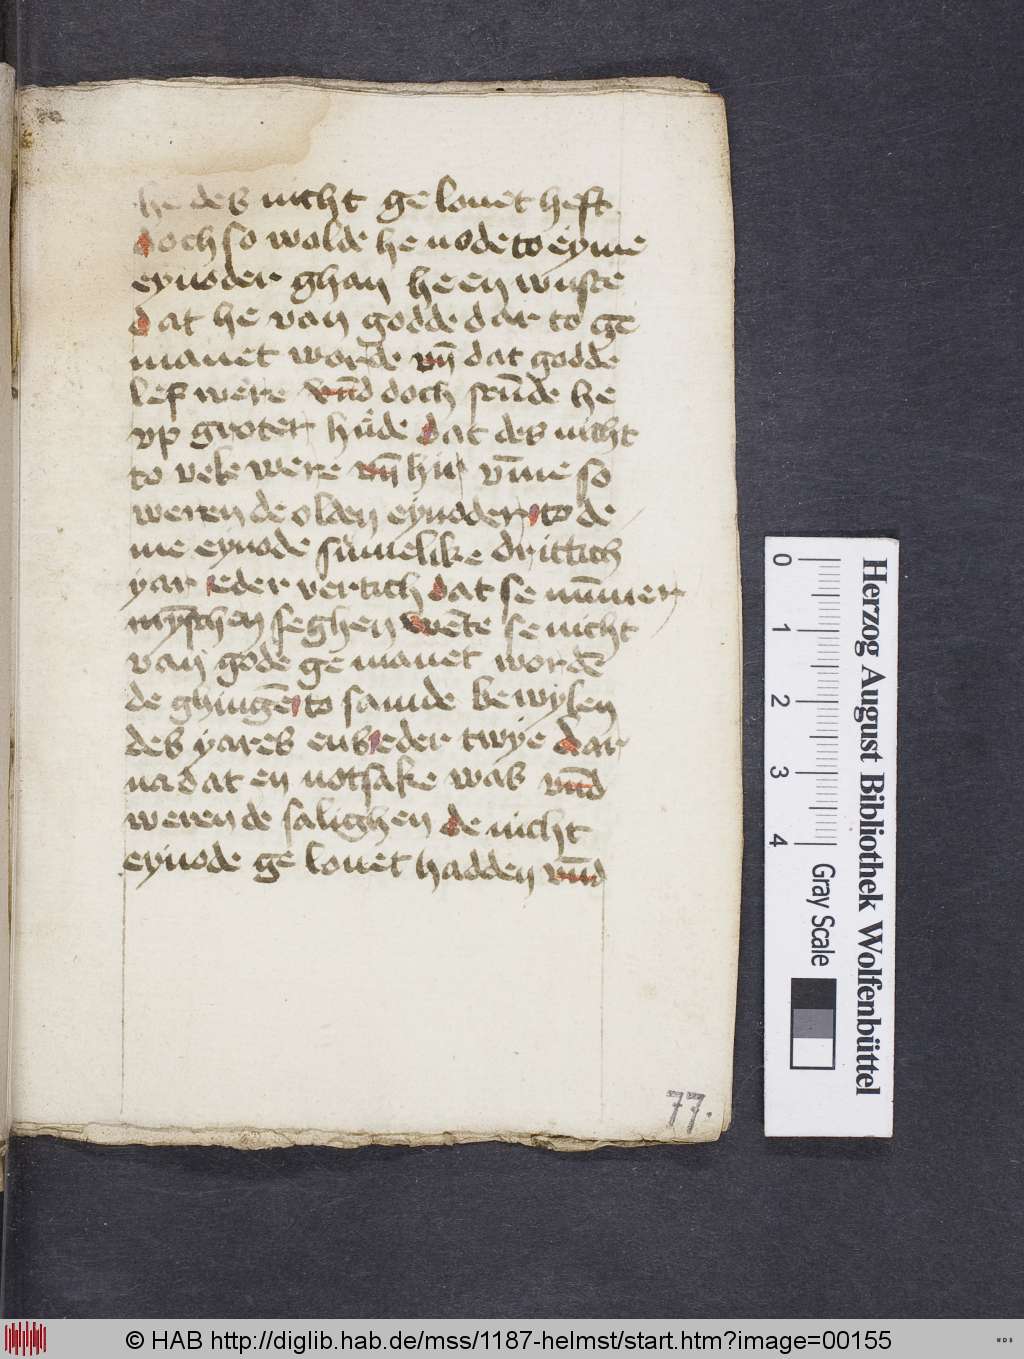 he des nicht ge louet heft
doch so wolde he node to eyme
eynoder ghan he en wuste
dat he van godde dar to ge
manet worde vn̄ dat godde
lef were vn̄d doch stūde he
vp groter hůde dat des nicht
to vele were vn̄ hir v̄me so
weren de olden eynoder to de
me eynode sůmelike drittich
yar eder vertich dat se nūmer
myschen seghen wēte se nicht
van gode ge manet wordē
de ghingē to samde be wylen
des yares ens eder twye dar
na dat en notsake was vn̄d
weren de salighen de nicht
eynode ge louet hadden vn̄d
77.
0 1 2 3 4
Gray Scale
Herzog August Bibliothek Wolfenbüttel
© HAB http://diglib.hab.de/mss/1187-helmst/start.htm?image=00155